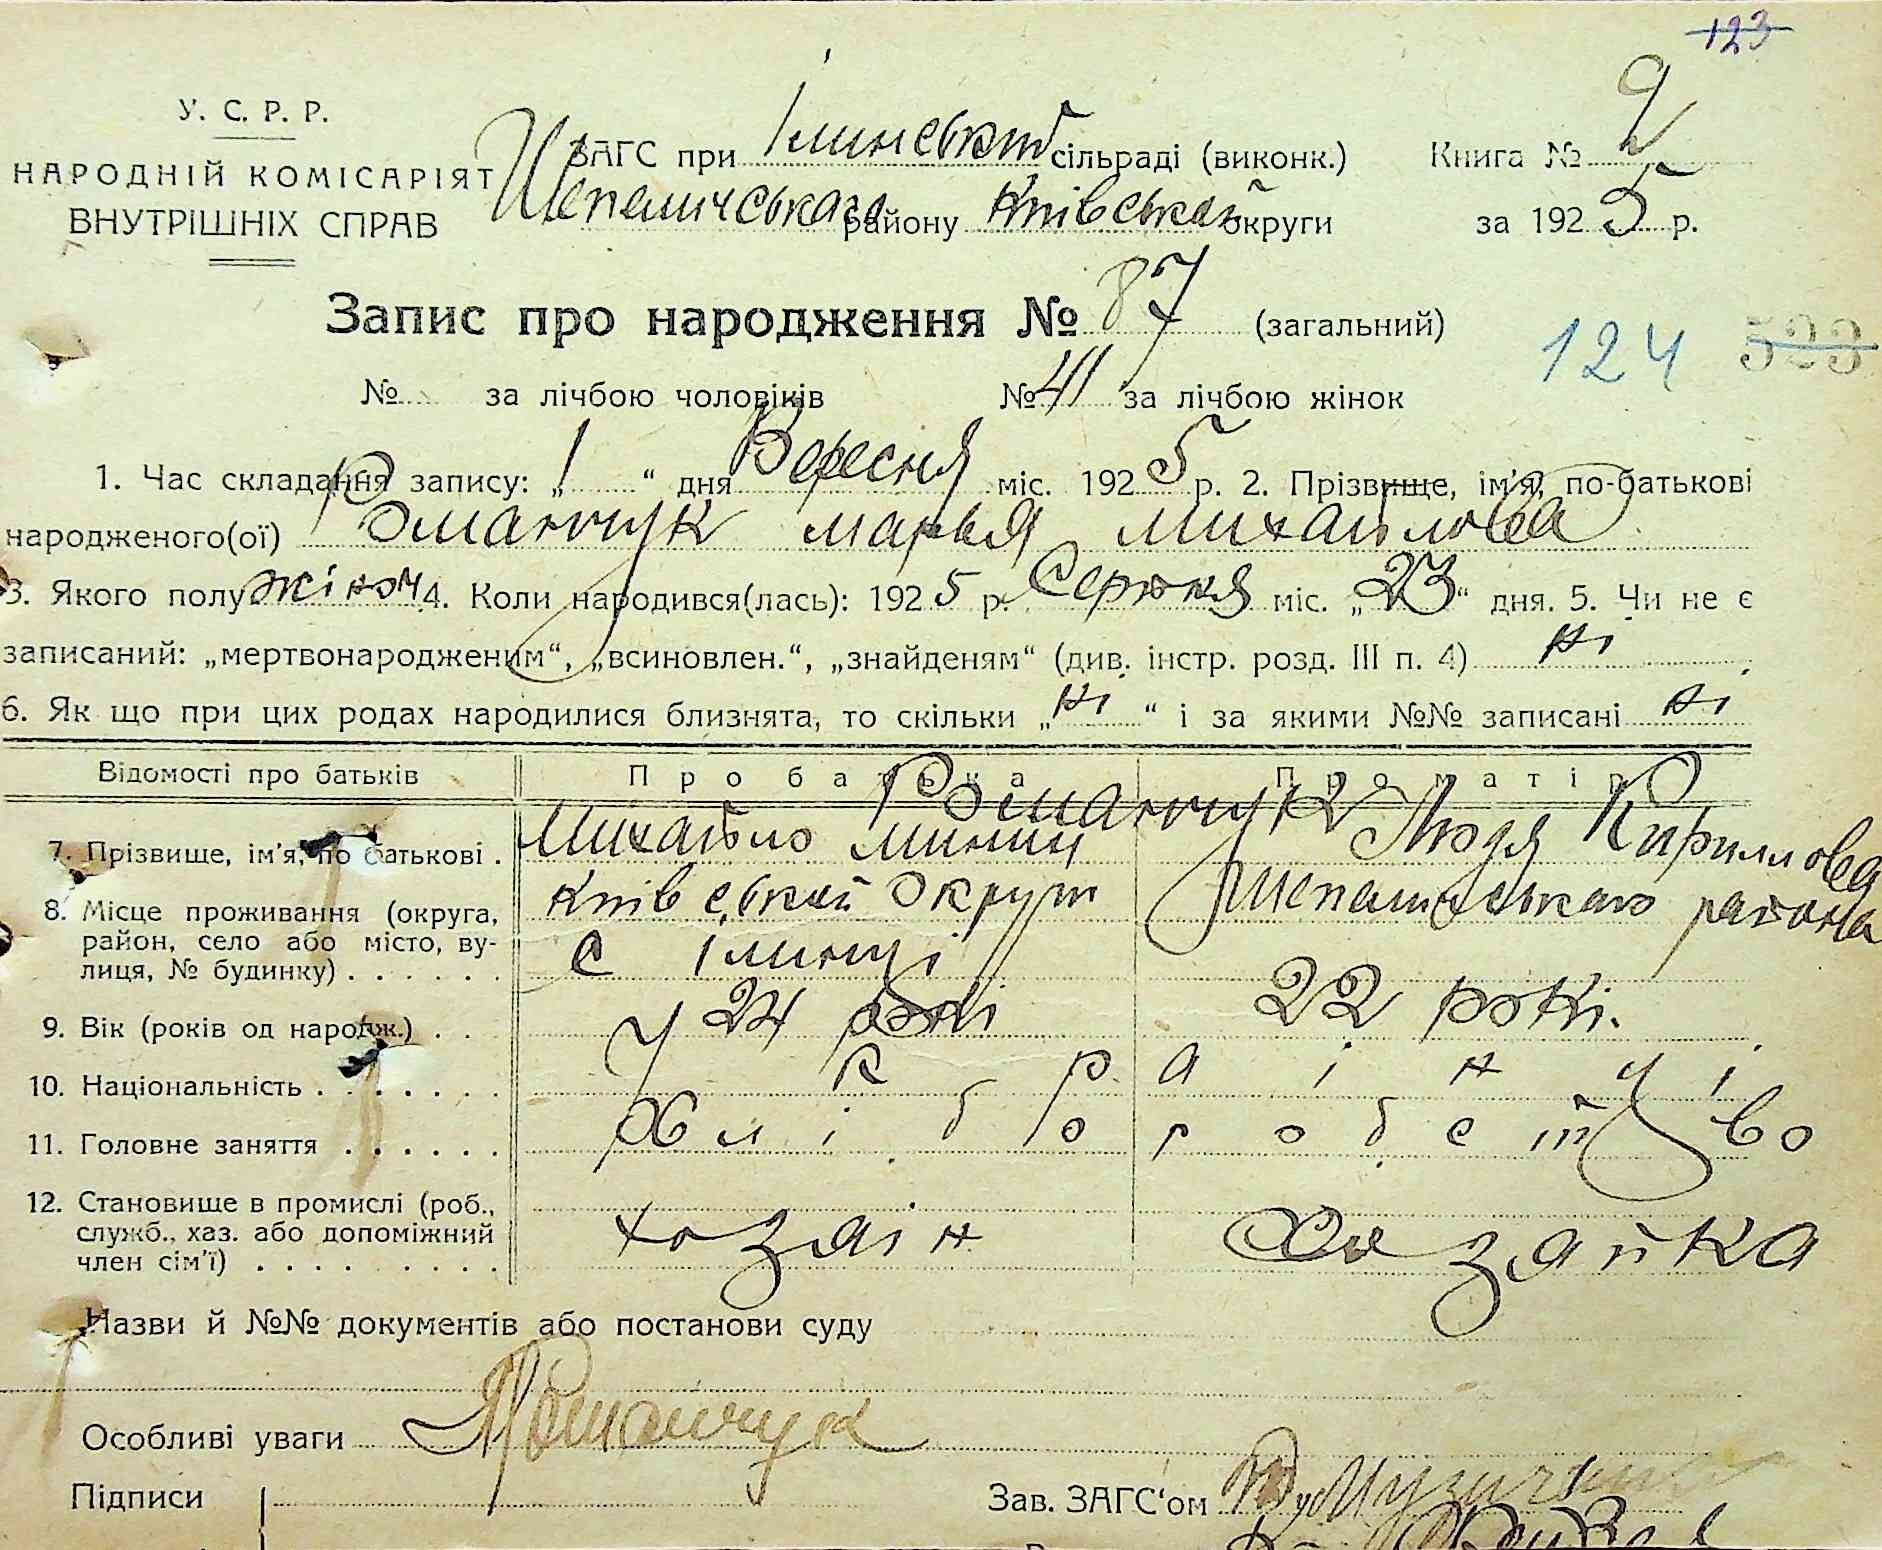 123
У. С. Р. Р.
НАРОДНІЙ КОМІСАРІЯТ
ВНУТРІШНІХ СПРАВ
ЗАГС при Ілинській сільраді (виконк.) Книга № 2
Шепеличського району Київської округи за 1925 р.
Запис про народження № 87 (загальний)
124 523
№ за лічбою чоловіків № 41 за лічбою жінок
1. Час складання запису: „1“ дня Вересня міс. 1925 р. 2. Прізвище, ім'я, по-батькові
народженого(ої) Романчук марья михайлова
3. Якого полу жіноч 4. Коли народився(лась): 1925 р. Серпня міс. „23“ дня. 5. Чи не є
записаний: „мертвонародженим“, „всиновлен.“, „знайденям“ (див. інстр. розд. III п. 4) ні
6. Як що при цих родах народилися близнята, то скільки „ні“ і за якими №№ записані ні
Відомості про батьків Про батька Про матір
Романчук
7. Прізвище, ім'я, по батькові . Михайло минич Кирилловa
8. Місце проживання (округа, Київської Округи Шепелическаго района
район, село або місто, ву- с Ілинці
лиця, № будинку) . . . . . .
9. Вік (років од народж.) . . 24 роки 22 рокі.
10. Національність . . . . . . . Українці
11. Головне заняття . . . . . . Хліборобство
12. Становище в промислі (роб.,
служб., хаз. або допоміжний хозяін Хозяйка
член сім'ї) . . . . . . . . .
Назви й №№ документів або постанови суду
Особливі уваги Романчук
Підписи Зав. ЗАГС'ом